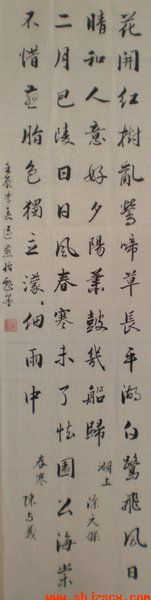 花開紅樹亂鶯啼草長平湖白鷺飛風日
晴和人意好夕陽簫鼓幾船歸
湖上 徐元傑
二月巴陵日日風春寒未了怯園公海棠
不惜燕脂色獨立濛々細雨中
春寒
陳与義
壬辰季春